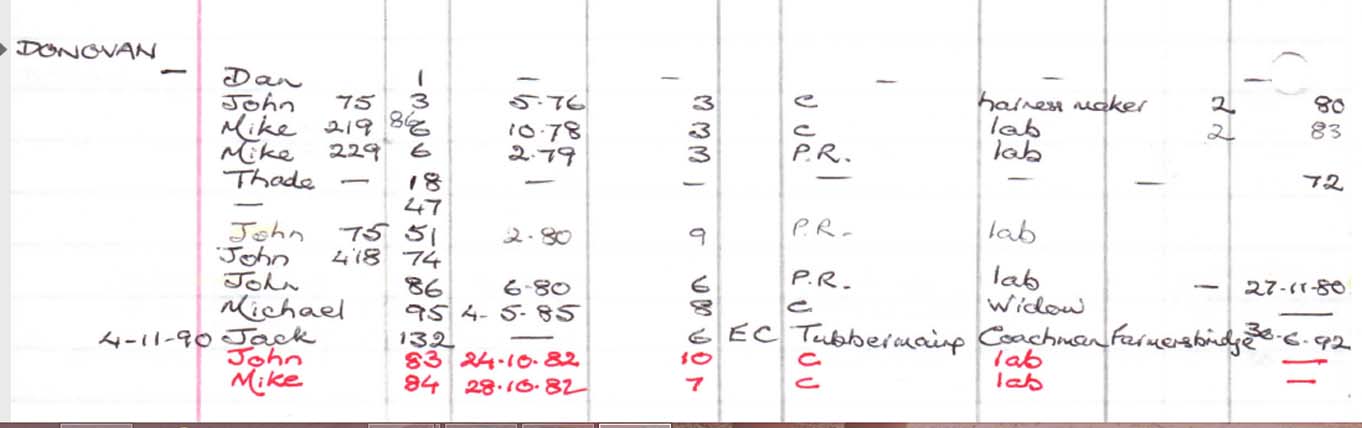 DONOVAN
— Dan 1 — — — — —
John 75 3 5.76 3 C harness maker 2 80
Mike 219 86 6 10.78 3 C lab 2 83
Mike 229 6 2.79 3 P.R. lab
Thade — 18 — — — — — 72
— 47
John 75 51 2.80 9 P.R. lab
John 418 74
John 86 6-80 6 P.R. lab — 27-11-80
Michael 95 4-5-85 8 C Widow —
4-11-90 Jack 132 — 6 EC Coachman Farmersbridge 30-6-92
John 83 24.10.82 10 C lab —
Mike 84 28.10.82 7 C lab —